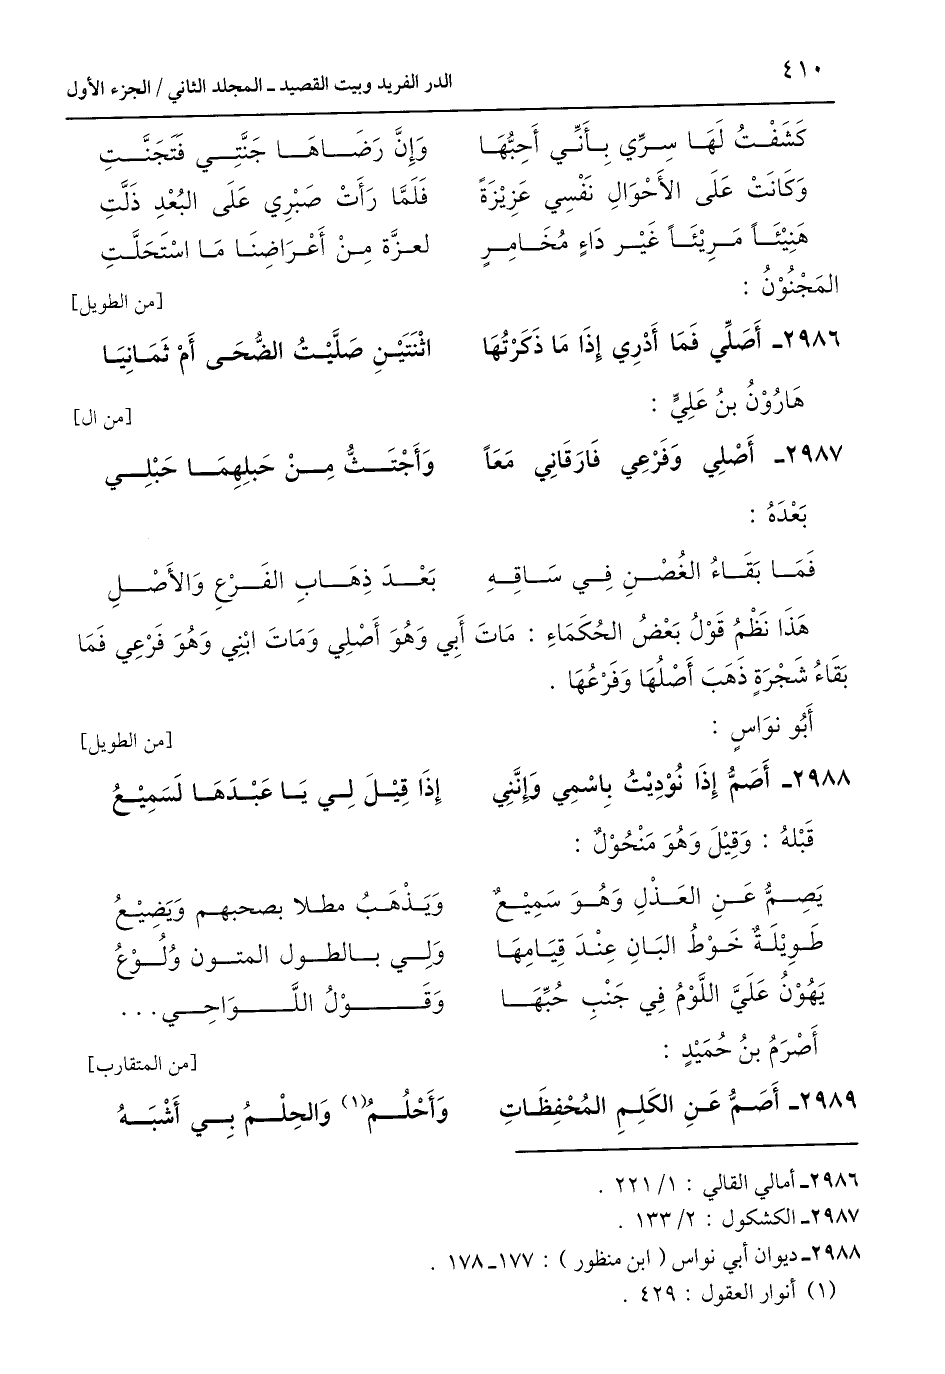 ٤١٠
الدر الفريد وبيت القصيد ـ المجلد الثاني / الجزء الأول
كَشَفْتُ لَهَا سِرِّي بِأَنِّي أُحِبُّهَا وَإِنَّ رَضَاهَا جَنَّتِي فَتَجَنَّتِ
وَكَانَتْ عَلَى الأَحْوَالِ نَفْسِي عَزِيْزَةً فَلَمَّا رَأَتْ صَبْرِي عَلَى البُعْدِ ذَلَّتِ
هَنِيْئَاً مَرِيْئَاً غَيْر دَاءٍ مُخَامِرٍ لعزَّة مِنْ أَعْرَاضِنَا مَا اسْتَحَلَّتِ
المَجْنُوْنُ : [من الطويل]
٢٩٨٦ـ أُصَلِّي فَمَا أَدْرِي إِذَا مَا ذَكَرْتُهَا اثْنَتَيْنِ صَلَّيْتُ الضُّحَى أَمْ ثَمَانِيَا
هَارُوْنُ بنُ عَلِيٍّ : [من ال]
٢٩٨٧ـ أَصْلِي وَفَرْعِي فَارَقَانِي مَعَاً وَأَجْتَثُّ مِنْ حَبلِهِمَا حَبْلِي
بَعْدَهُ :
فَمَا بَقَاءُ الغُصْنِ فِي سَاقِهِ بَعْدَ ذِهَابِ الفَرْعِ وَالأَصْلِ
هَذَا نَظْمُ قَوْلُ بَعْضُ الحُكَمَاءِ : مَاتَ أَبِي وَهُوَ أَصْلِي وَمَاتَ ابْنِي وَهُوَ فَرْعِي فَمَا
بَقَاءُ شَجْرَةٍ ذَهَبَ أَصْلُهَا وَفَرْعُهَا .
أَبُو نوَاسٍ : [من الطويل]
٢٩٨٨ـ أَصَمُّ إِذَا نُوْدِيْتُ بِاسْمِي وَإِنَّنِي إِذَا قِيْلَ لِي يَا عَبْدَهَا لَسَمِيْعُ
قَبْلهُ : وَقِيْلَ وَهُوَ مَنْحُوْلٌ :
يَصِمُّ عَنِ العَذْلِ وَهُوَ سَمِيْعٌ وَيَذْهَبُ مطلا بصحبهم وَيَضِيْعُ
طَوِيْلَةٌ خَوْطُ البَانِ عِنْدَ قِيَامِهَا وَلِي بالطول المتون وُلُوْعُ
يَهُوْنُ عَلَيَّ اللَّوْمُ فِي جَنْبِ حُبِّهَا وَقَوْلُ اللَّوَاحِي...
أَصْرَمُ بنُ حُمَيْدٍ : [من المتقارب]
٢٩٨٩ـ أَصَمُّ عَنِ الكَلِمِ المُحْفِظَاتِ وَأَحْلُمُ(١) وَالحِلْمُ بِي أَشْبَهُ
٢٩٨٦ـ أمالي القالي : ١/ ٢٢١ .
٢٩٨٧ـ الكشكول : ٢/ ١٣٣ .
٢٩٨٨ـ ديوان أبي نواس ( ابن منظور ) : ١٧٧ـ١٧٨ .
(١) أنوار العقول : ٤٢٩ .